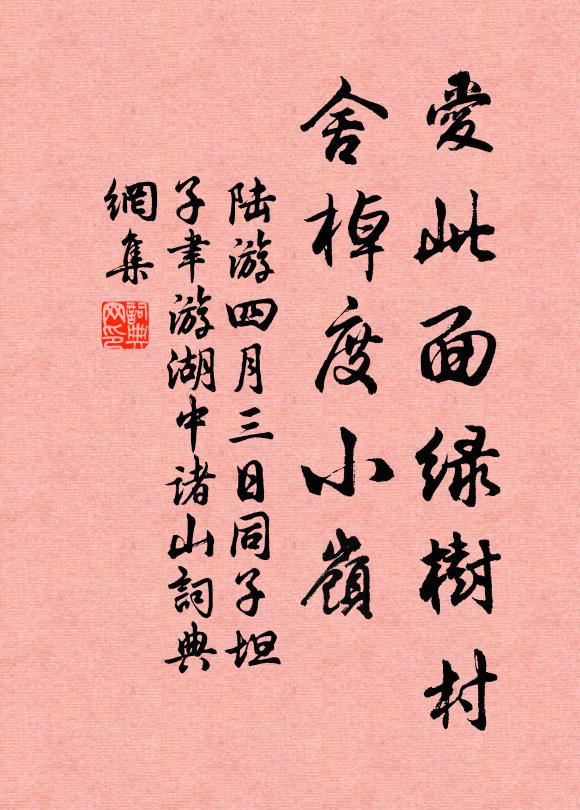 愛此面緑樹村
舍棹度小嶺
陆游四月三日同子坦
子聿游湖中诸山詞典
網集
詞典
网印